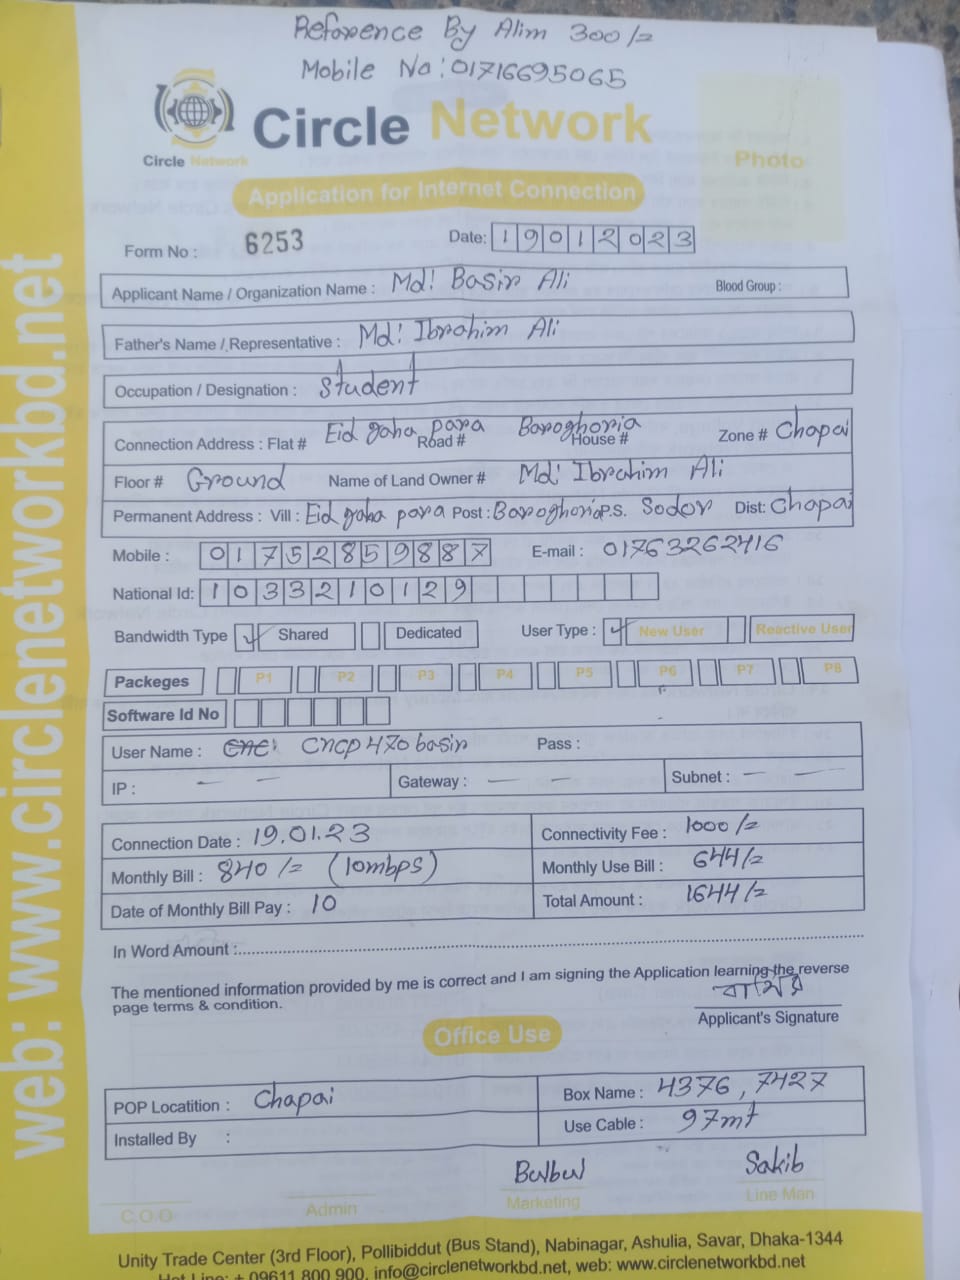 Reference By Alim 300/=
Mobile No: 01716695065
Circle Network
Circle Network
Photo
Application for Internet Connection
Form No : 6253
Date: 19012023
Applicant Name / Organization Name : Md: Basir Ali Blood Group :
Father's Name / Representative : Md: Ibrahim Ali
Occupation / Designation : Student
Connection Address : Flat # Eid gaha para Road # Baroghoria House # Zone # Chapai
Floor # Ground Name of Land Owner # Md: Ibrahim Ali
Permanent Address : Vill : Eid gaha para Post : Baroghoria P.S. Sodor Dist: Chapai
Mobile : 01752859887 E-mail : 01763262416
National Id: 1033210129
Bandwidth Type ✓ Shared Dedicated User Type : ✓ New User Reactive User
Packeges P1 P2 P3 P4 P5 P6 P7 P8
Software Id No
User Name : cncp470basir Pass :
IP : — — Gateway : — — Subnet : — —
Connection Date : 19.01.23 Connectivity Fee : 1000/=
Monthly Bill : 840/= (10mbps) Monthly Use Bill : 644/=
Date of Monthly Bill Pay : 10 Total Amount : 1644/=
In Word Amount :
The mentioned information provided by me is correct and I am signing the Application learning the reverse
page terms & condition.
Applicant's Signature
Office Use
POP Locatition : Chapai Box Name : 4376, 7427
Installed By : Use Cable : 97mt
Bulbul Sakib
C.O.O Admin Marketing Line Man
Unity Trade Center (3rd Floor), Pollibiddut (Bus Stand), Nabinagar, Ashulia, Savar, Dhaka-1344
Hot Line: + 09611 800 900, info@circlenetworkbd.net, web: www.circlenetworkbd.net
web: www.circlenetworkbd.net